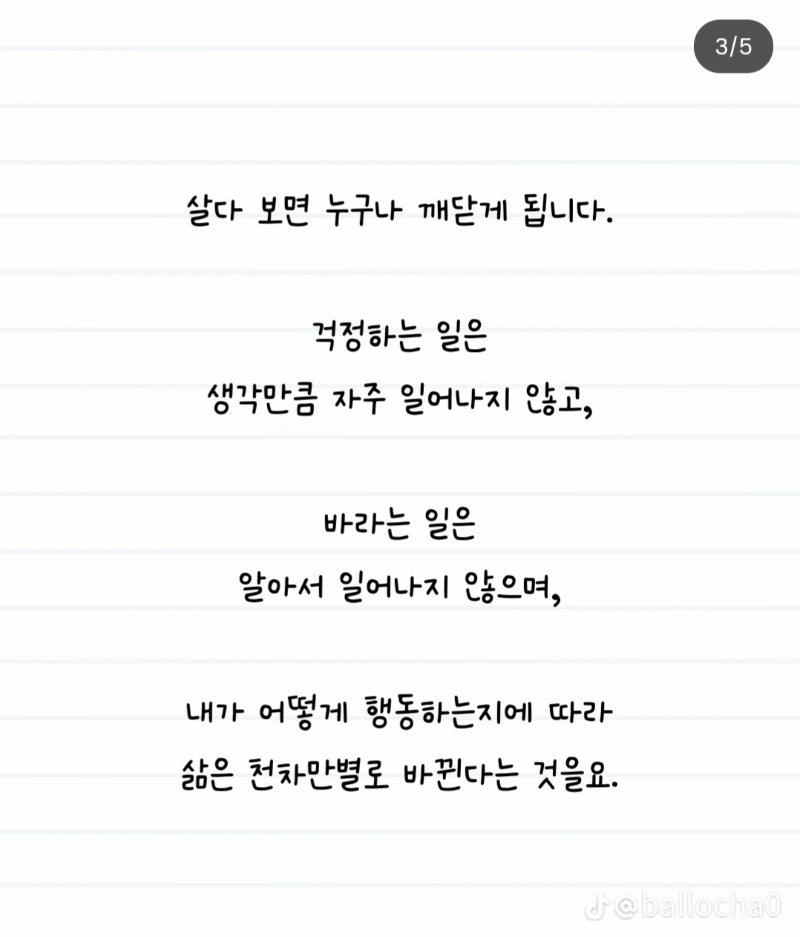 3/5
살다 보면 누구나 깨닫게 됩니다.
걱정하는 일은
생각만큼 자주 일어나지 않고,
바라는 일은
알아서 일어나지 않으며,
내가 어떻게 행동하는지에 따라
삶은 천차만별로 바뀐다는 것을요.
@ballocha0